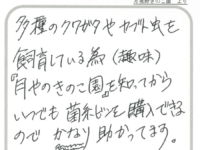 多種のクワガタやカブト虫を
飼育している為（趣味）
『月夜のきのこ園』を知ってから
いつでも菌糸ビンを購入できる
ので かなり助かってます。